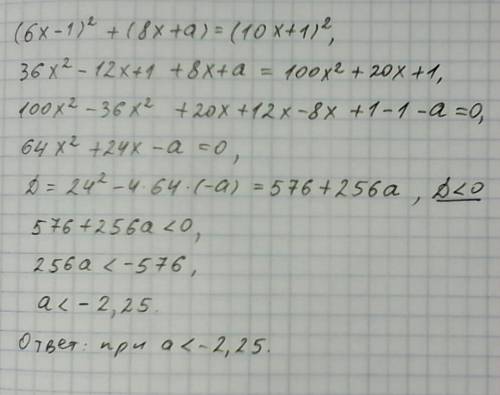 (6x-1)² + (8x+a) = (10x+1)²,
36x² - 12x+1 + 8x+a = 100x² + 20x + 1,
100x² - 36x² + 20x + 12x - 8x + 1 - 1 - a = 0,
64x² + 24x - a = 0,
D = 24² - 4·64·(-a) = 576 + 256a , D<0
576 + 256a < 0,
256a < -576,
a < -2,25.
Ответ: при a < -2,25.